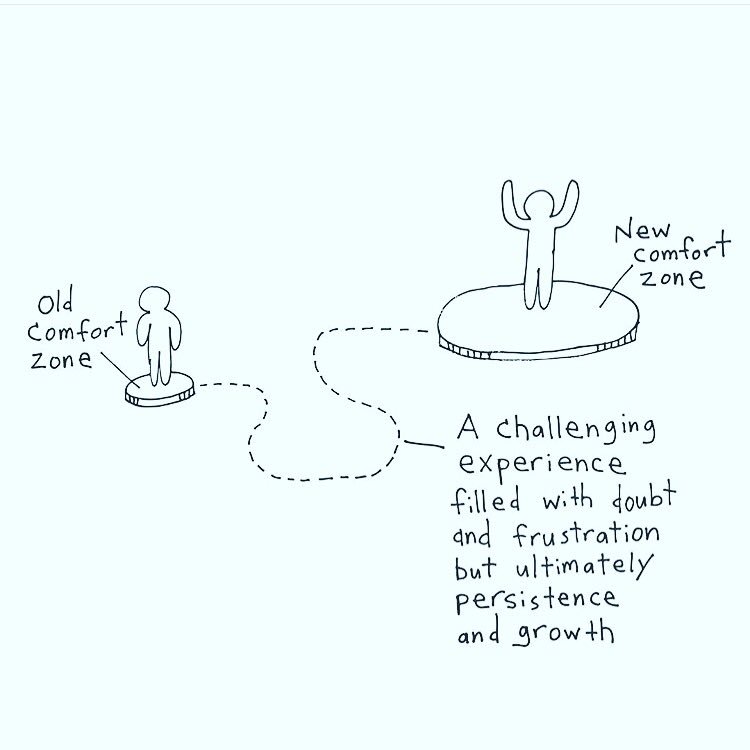 Old
comfort
zone
New
comfort
zone
A challenging
experience
filled with doubt
and frustration
but ultimately
persistence
and growth